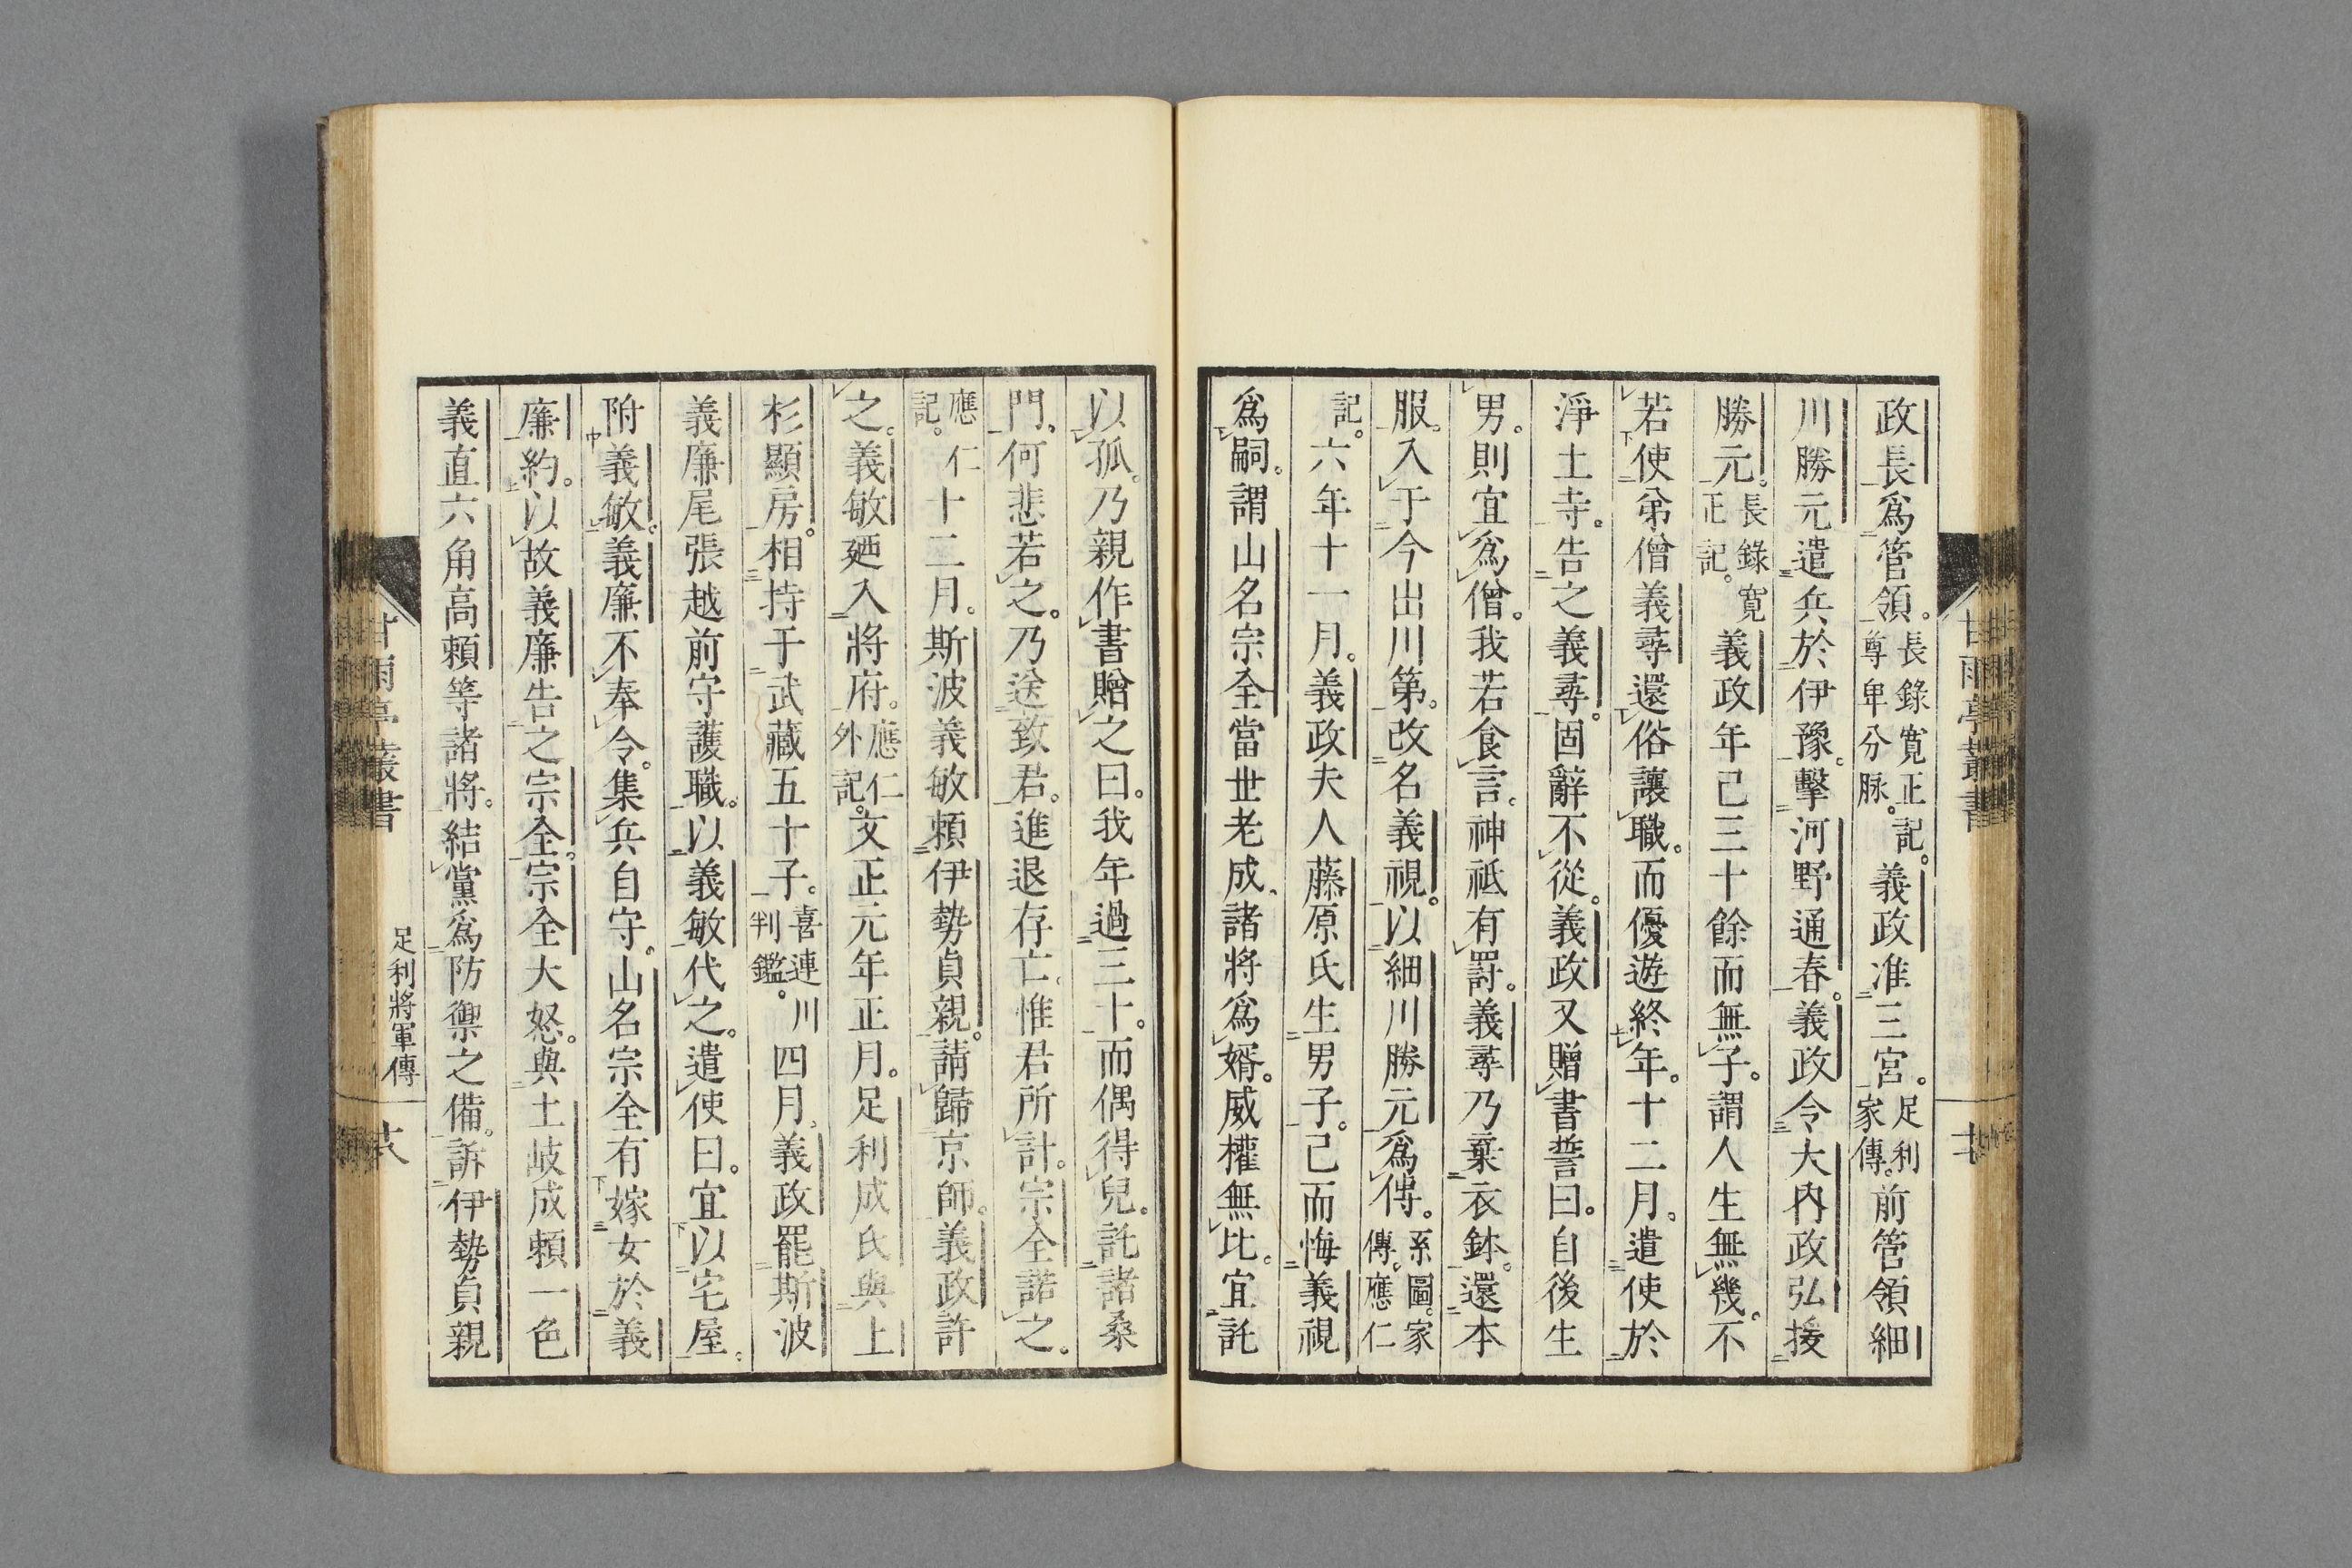 政長爲管領。長錄寬正記。尊卑分脉。義政准三宮。足利家傳。前管領細
川勝元遣兵於伊豫。擊河野通春。義政令大內政弘援
勝元。長錄寬正記。義政年已三十餘而無子。謂人生無幾。不
若使弟僧義尋還俗讓職。而優遊終年。十二月。遣使於
淨土寺。告之義尋。固辭不從。義政又贈書誓曰。自後生
男。則宜爲僧。我若食言。神祇有罸。義尋乃棄衣鉢。還本
服。入于今出川第。改名義視。以細川勝元爲傅。系圖。家傳。應仁
記。六年十一月。義政夫人藤原氏生男子。已而悔義視
爲嗣。謂山名宗全當世老成、諸將爲婿。威權無比。宜託
以孤。乃親作書贈之曰。我年過三十。而偶得兒。託諸桑
門、何悲若之。乃送致君。進退存亡。惟君所計。宗全諾之。
應仁記。十二月。斯波義敏賴伊勢貞親。請歸京師。義政許
之。義敏廼入將府。應仁外記。文正元年正月。足利成氏與上
杉顯房。相持于武藏五十子。喜連川判鑑。四月、義政罷斯波
義廉尾張越前守護職。以義敏代之。遣使曰。宜以宅屋。
附義敏。義廉不奉令。集兵自守。山名宗全有嫁女於義
廉約。以故義廉告之宗全。宗全大怒。與土岐成賴一色
義直六角高賴等諸將。結黨爲防禦之備。訴伊勢貞親
甘雨亭叢書
足利將軍傳